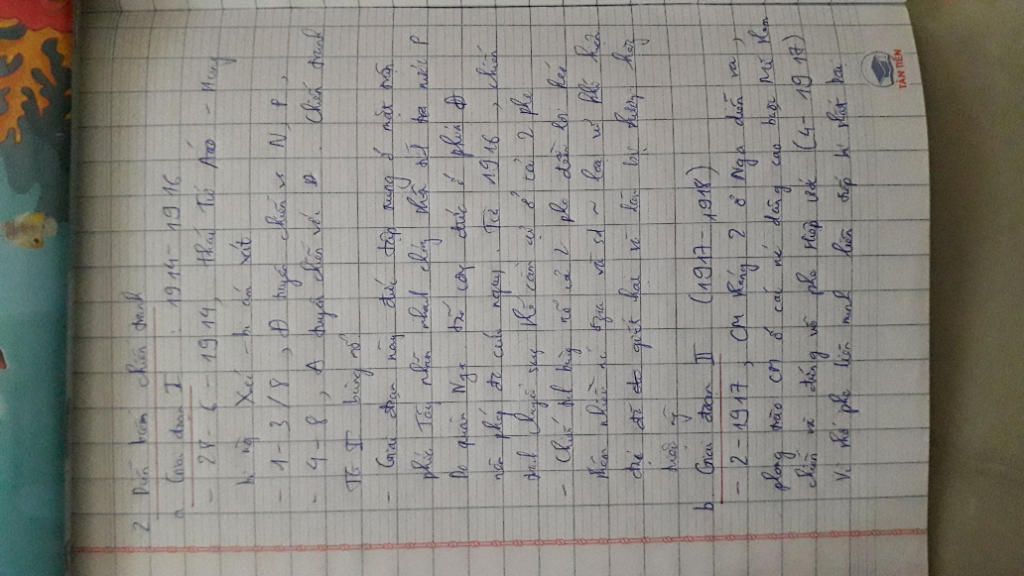 2 Diễn biến chiến tranh
a Giai đoạn I : 1914-1916
- 28 - 6 - 1914, Thái Tử Áo - Hung
bị ng Xéc - bi ám sát
- 1 - 3/8, Đ tuyên chiến vs N, P,
- 4 - 8, A tuyên chiến với Đ. Chiến tranh
TG I bùng nổ
- Giai đoạn này đức tập trung ở mặt trận
phía Tây nhằm nhanh chóng
Do quân Nga tấn công đức ở phía Đ
nên pháp đc cứu nguy. Từ 1916, chiến
tranh chuyển sang cầm cự ở cả 2 phe
- Chiến tranh bùng nổ cả 2 phe đều lôi kéo
thêm nhiều nc tgia và sd ~ loại vũ khí hiện
đại đã giết hại và làm bị thương hàng
triệu ng
b Giai đoạn II (1917-1918)
- 2-1917, CM tháng 2 ở Nga diễn ra,
phong trào CM ở các nc dâng cao buộc Mĩ tham
chiến và đứng về phe Hiệp ước (4-1917)
Vì thế phe liên minh liên tiếp bị thất bại
TÂN TIẾN